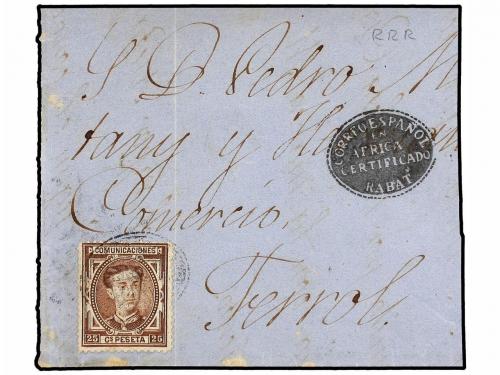 RRR
S D. Pedro M
tany y
Comercio,
Ferrol.
CORREO ESPAÑOL
EN
AFRICA
CERTIFICADO
RABAT
COMUNICACIONES
25 Cs PESETA 25